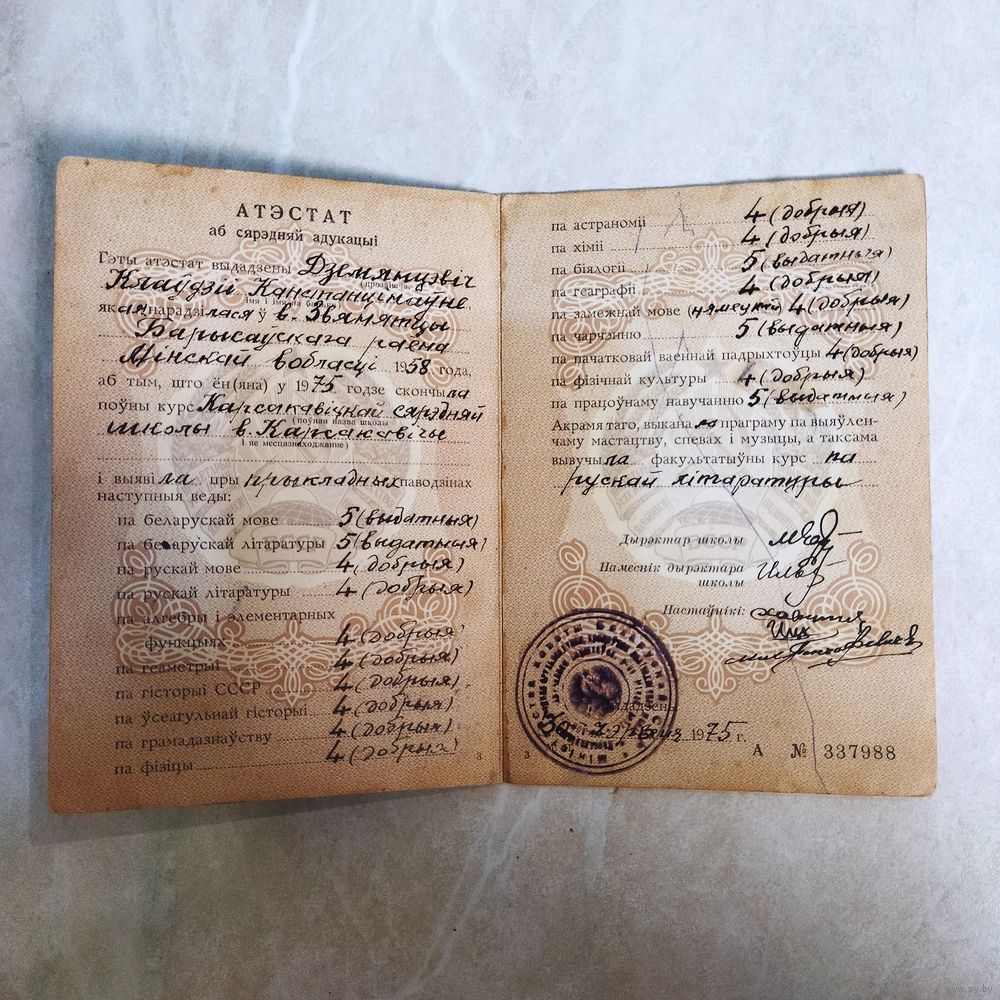 АТЭСТАТ
аб сярэдняй адукацыі
Гэты атэстат выдадзены Дземянцэвіч
(прозвішча,
Клаўдзіі Канстанцінаўне,
імя і імя па бацьку)
якая нарадзілася ў в. Звянятцы
Барысаўскага раёна
Мінскай вобласці 1958 года,
аб тым, што ён(яна) у 1975 годзе скончыла
поўны курс Карсакавіцкай сярэдняй
(поўная назва школы
школы в. Карсакавічы
і яе месцазнаходжанне)
і выявіла пры прыкладных паводзінах
наступныя веды:
па беларускай мове 5 (выдатныя)
па беларускай літаратуры 5 (выдатныя)
па рускай мове 4 (добрыя)
па рускай літаратуры 4 (добрыя)
па алгебры і элементарных
функцыях 4 (добрыя)
па геаметрыі 4 (добрыя)
па гісторыі СССР 4 (добрыя)
па ўсеагульнай гісторыі 4 (добрыя)
па грамадазнаўству 4 (добрыя)
па фізіцы 4 (добрыя)
3
па астраноміі 4 (добрыя)
па хіміі 4 (добрыя)
па біялогіі 5 (выдатныя)
па геаграфіі 4 (добрыя)
па замежнай мове (нямецкай) 4 (добрыя)
па чарчэнню 5 (выдатныя)
па пачатковай ваеннай падрыхтоўцы 4 (добрыя)
па фізічнай культуры 4 (добрыя)
па працоўнаму навучанню 5 (выдатныя)
Акрамя таго, выканала праграму па выяўлен-
чаму мастацтву, спевах і музыцы, а таксама
вывучыла факультатыўны курс па
рускай літаратуры
БССР
Дырэктар школы
Намеснік дырэктара
школы
Настаўнікі:
1975 г.
3
А № 337988
www.ay.by